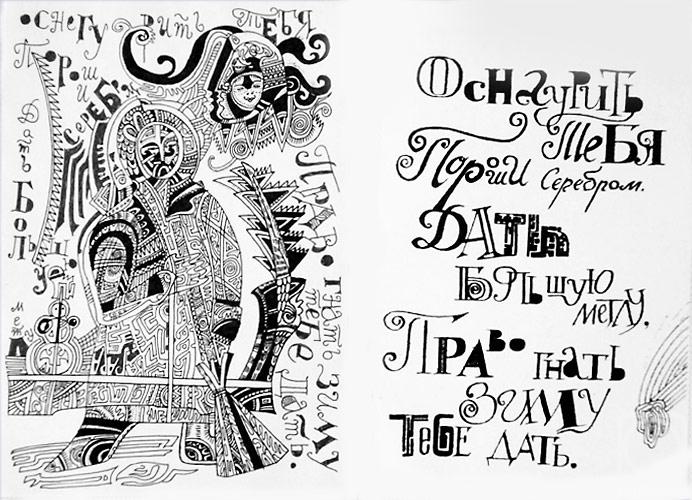 оснегурить тебя
Порош
и
Дать
Больш
Право гнать зиму
тебе дать.
Оснегурить
тебя
Пороши Серебром.
Дать
Большую
метлу.
Право гнать
зиму
тебе дать.